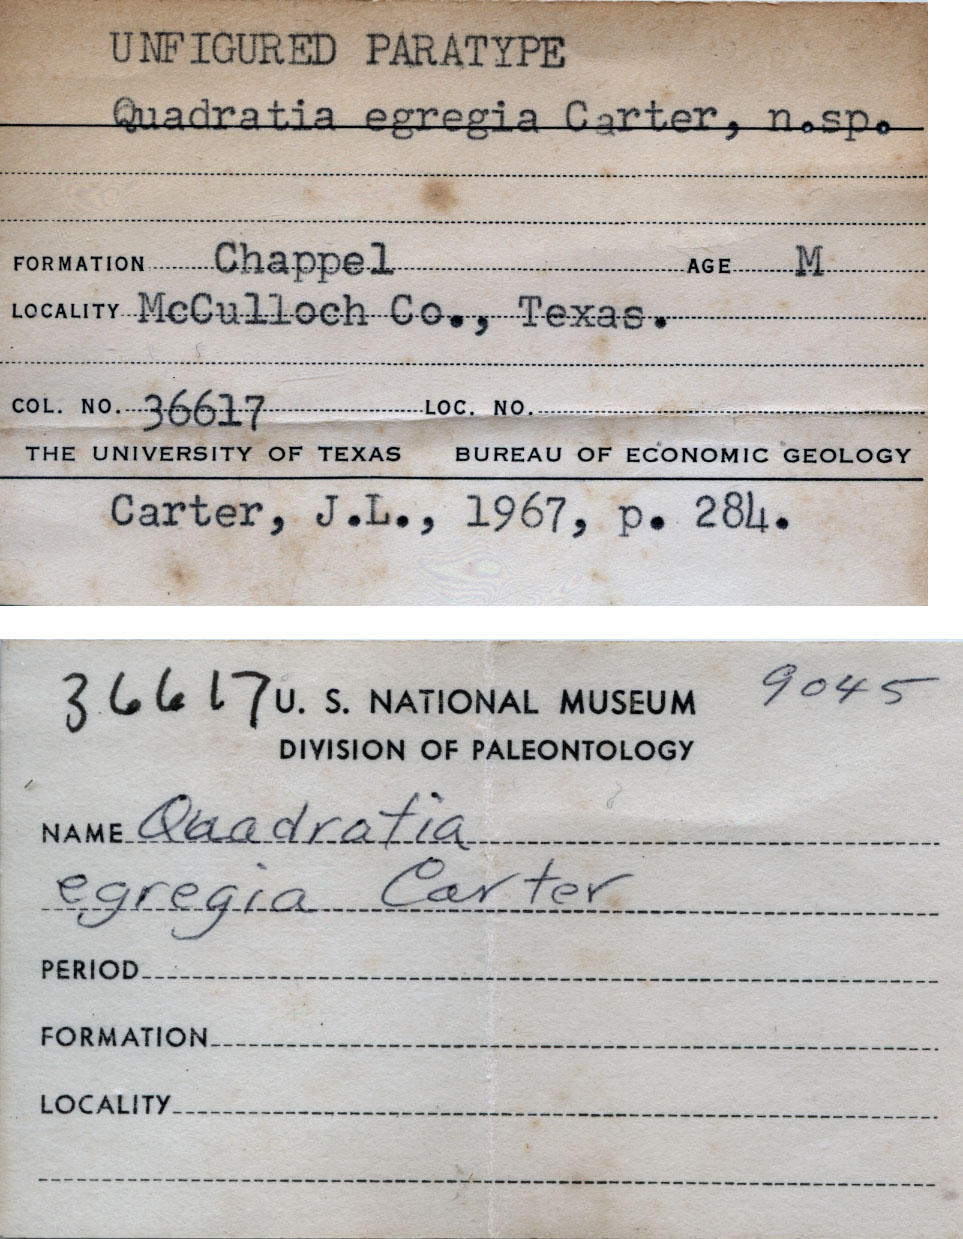 UNFIGURED PARATYPE
Quadratia egregia Carter, n.sp.
FORMATION Chappel AGE M
LOCALITY McCulloch Co., Texas.
COL. NO. 36617 LOC. NO.
THE UNIVERSITY OF TEXAS BUREAU OF ECONOMIC GEOLOGY
Carter, J.L., 1967, p. 284.
36617 U. S. NATIONAL MUSEUM 9045
DIVISION OF PALEONTOLOGY
NAME Quadratia
egregia Carter
PERIOD
FORMATION
LOCALITY